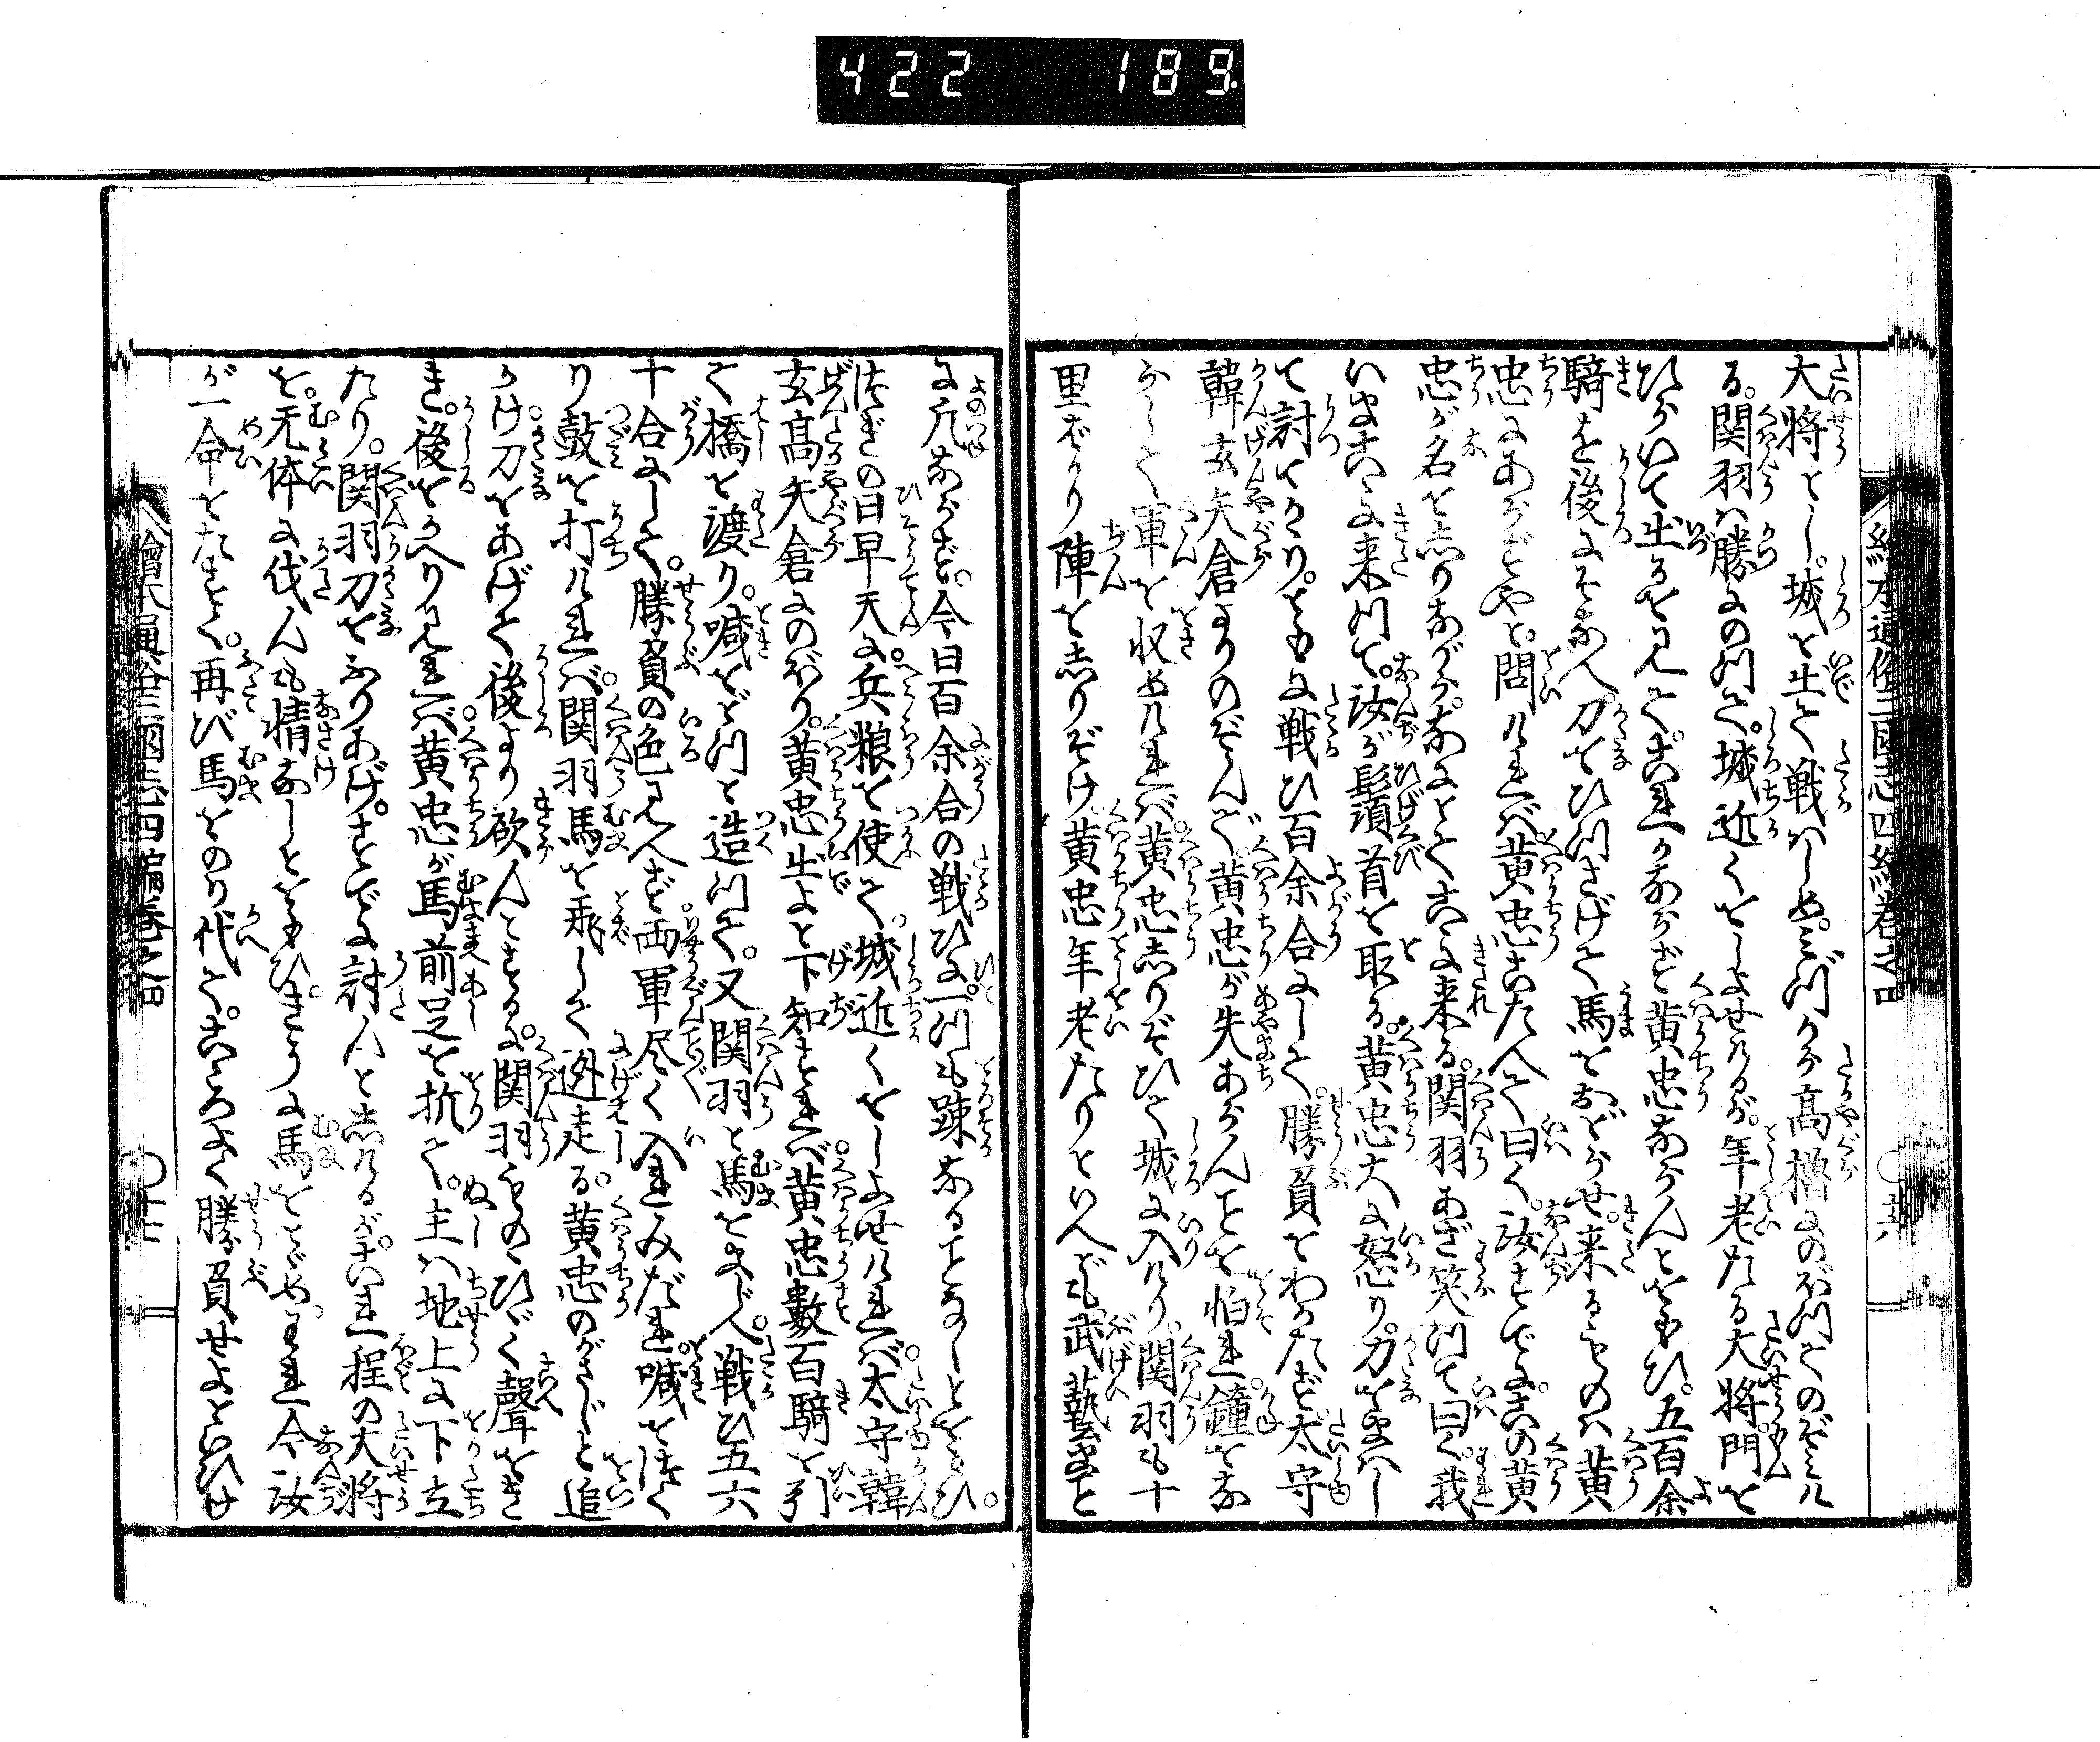 422 189
大将とし。城を出て戦はしめ。みづから高櫓にのぼつてのぞみけ
る。関羽ハ勝にのつて。城近くをしよせけるが。年老たる大将。門を
ひらいて出るを見て。これかならず黄忠ならんとをもひ。五百余
騎を後にそなへ刀をひつさげて馬をおどらせ。来るものハ黄
忠にあらずやと。問けれバ黄忠こたへて曰く。汝すでに。この黄
忠が名をしりながら。なにとてこゝに来る。関羽あざ笑つて曰く。我
いまこゝに来つて。汝が髭首を取る。黄忠大に怒り。刀をまハし
て討てかゝり。たがひに戦ひ百余合にして。勝負をわかたず。太守
韓玄矢倉よりのぞんで黄忠が失あらんことを怕れ鐘をな
らして軍を収めけれバ。黄忠しりぞひて城に入けり。関羽も十
里ばかり陣をしりぞけ黄忠年老たりといへども武藝まこと
に凡ならず。今日百余合の戦ひに。一つも踈なることなしとをもひ。
つぎの日早天に。兵粮を使て。城近くをしよせけれバ。太守韓
玄高矢倉にのぼり。黄忠出よと下知すれバ。黄忠數百騎を引
て橋を渡り。喊をどつと造つて。又関羽と馬をまじへ。戦ひ五六
十合にして。勝負の色見へず。両軍尽く入れみだれ。喊をつく
り鼓を打けれバ。関羽馬を飛して逃走る。黄忠のがさじと追
かけ刀をあげて後より砍んとする。に。関羽ものゝひゞく聲をきゝ
き。後をかへり見れバ。黄忠が馬前足を折て。主ハ地上に下立
たり。関羽刀をふりあげ。すでに討んとしけるが。これ程の大将
を。无体に伐んも情なしとをもひ。きうに馬をとゞめ。われ今汝
が一命をたすく。再び馬をのり代て。こゝろよく勝負せよといひけ
繪本通俗三國志四編巻之四 〇十六
繪本通俗三國志四編巻之四 〇十七